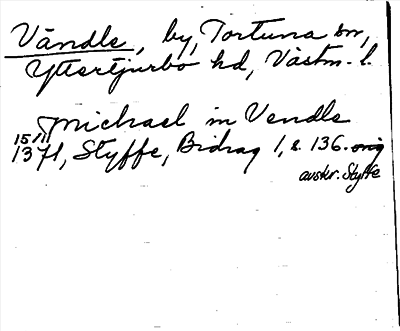 Vändle, by, Tortuna sn,
Yttertjurbo hd, Västm. l.
Michael in Vendle
15/11 1371, Styffe, Bidrag 1, s. 136. orig
avskr. Styffe